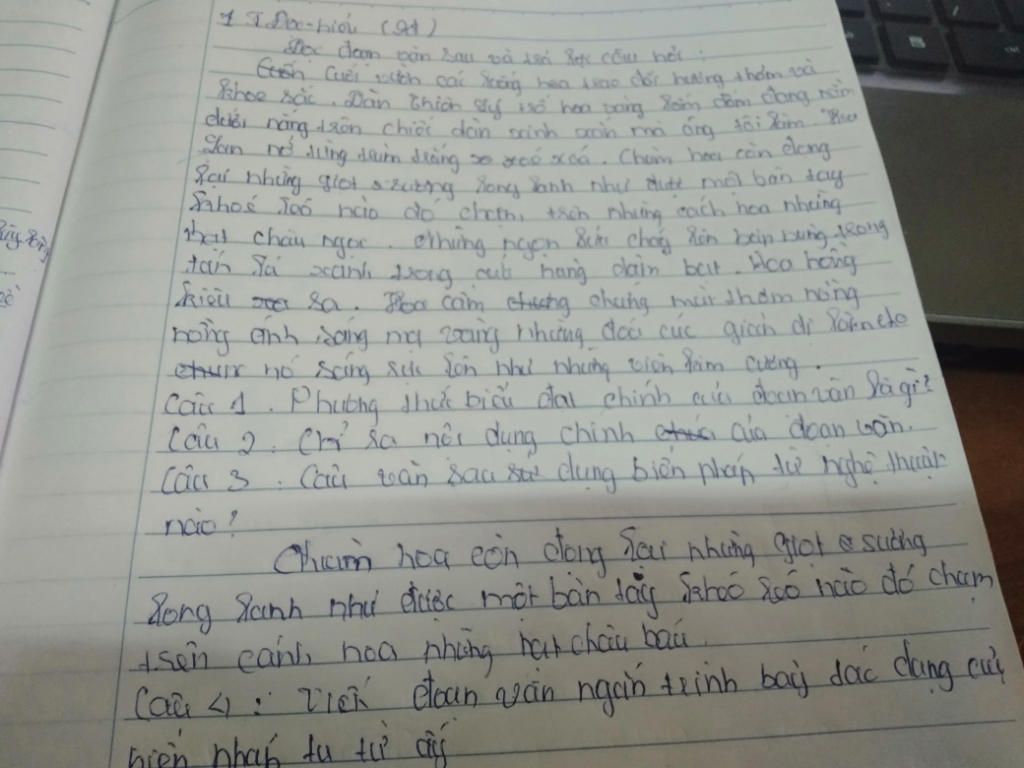 I. Đọc-hiểu (
Đọc đoạn văn sau và trả lời câu hỏi:
Cuối vườn các loài hoa trao đổi hương thơm và
khoe sắc. Dàn thiên lý trổ hoa vàng lốm đốm đang nằm
dưới nắng trên chiếc dàn xinh xinh mà ông tôi làm. Hoa
lan nở từng chùm trắng xoá xoá. Chùm hoa còn đọng
lại những giọt sương long lanh như được một bàn tay
khoé léo nào đó chạm, trên những cách hoa những
hạt châu ngọc. Những ngọn lửu cháy lên bập bùng trong
tán lá xanh trong của hàng dâm bụt. Hoa hồng
kiêu sa. Hoa cẩm chướng mùi thơm nồng
nồng ánh sáng mạ vàng những đoá cúc giản dị làm cho
nó sáng rực lên như những viên kim cương.
Câu 1. Phương thức biểu đạt chính của đoạn văn là gì?
Câu 2. Chỉ ra nội dung chính của đoạn văn.
Câu 3. Câu văn sau sử dụng biến pháp từ nghệ thuật
nào?
Chùm hoa còn đọng lại những giọt sương
long lanh như được một bàn tây khoó loó nào đó chạm
trên cánh hoa những hạt châu báu.
Câu 4: Viết đoạn văn ngắn trình bày tác dụng của
biện pháp tu từ ấy